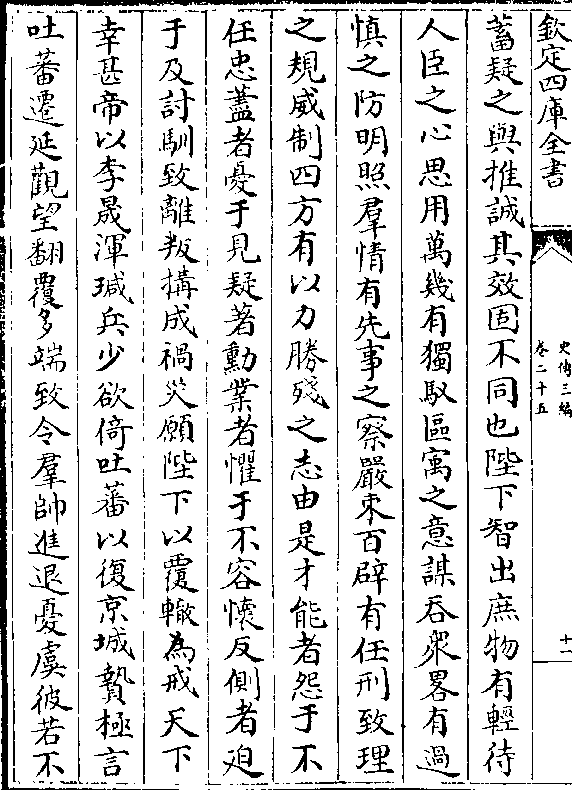 欽定四庫全書
史傳三編
卷二十五
十一
蓄疑之與推誠其效固不同也陛下智出庶物有輕待
人臣之心思用萬幾有獨馭區寓之意謀吞衆畧有過
慎之防明照羣情有先事之察嚴束百辟有任刑致理
之規威制四方有以力勝殘之志由是才能者怨于不
任忠藎者憂于見疑著勳業者懼于不容懷反側者迫
于及討馴致離叛搆成禍災願陛下以覆轍為戒天下
幸甚帝以李晟渾瑊兵少欲倚吐蕃以復京城贄極言
吐蕃遷延觀望翻覆多端致令羣帥進退憂虞彼若不